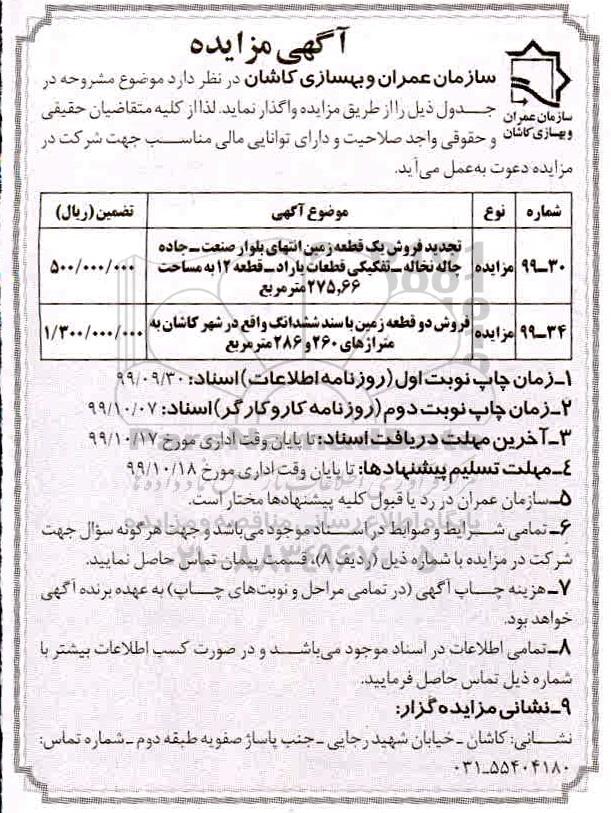 آگهی مزایده
سازمان عمران
و بهسازی کاشان
سازمان عمران و بهسازی کاشان در نظر دارد موضوع مشروحه در
جدول ذیل را از طریق مزایده واگذار نماید. لذا از کلیه متقاضیان حقیقی
و حقوقی واجد صلاحیت و دارای توانایی مالی مناسب جهت شرکت در
مزایده دعوت به‌عمل می‌آید.
شماره نوع موضوع آگهی تضمین (ریال)
۳۰ـ۹۹ مزایده تجدید فروش یک قطعه زمین انتهای بلوار صنعت ـ جاده
چاله نخاله ـ تفکیکی قطعات یاراد ـ قطعه ۱۲ به مساحت
۲۷۵,۶۶ مترمربع
۵۰۰/۰۰۰/۰۰۰
۳۴ـ۹۹ مزایده فروش دو قطعه زمین با سند ششدانگ واقع در شهر کاشان به
متراژهای ۲۶۰ و ۲۸۶ مترمربع
۱/۳۰۰/۰۰۰/۰۰۰
۱ـ زمان چاپ نوبت اول (روزنامه اطلاعات) اسناد: ۹۹/۰۹/۳۰
۲ـ زمان چاپ نوبت دوم (روزنامه کار و کارگر) اسناد: ۹۹/۱۰/۰۷
۳ـ آخرین مهلت دریافت اسناد: تا پایان وقت اداری مورخ ۹۹/۱۰/۱۷
۴ـ مهلت تسلیم پیشنهادها: تا پایان وقت اداری مورخ ۹۹/۱۰/۱۸
۵ـ سازمان عمران در رد یا قبول کلیه پیشنهادها مختار است.
۶ـ تمامی شرایط و ضوابط در اسناد موجود می‌باشد و جهت هر گونه سؤال جهت
شرکت در مزایده با شماره ذیل (ردیف ۸)، قسمت پیمان تماس حاصل نمایید.
۷ـ هزینه چاپ آگهی (در تمامی مراحل و نوبت‌های چاپ) به عهده برنده آگهی
خواهد بود.
۸ـ تمامی اطلاعات در اسناد موجود می‌باشد و در صورت کسب اطلاعات بیشتر با
شماره ذیل تماس حاصل فرمایید.
۹ـ نشانی مزایده گزار:
نشانی: کاشان ـ خیابان شهید رجایی ـ جنب پاساژ صفویه طبقه دوم ـ شماره تماس:
۵۵۴۰۴۱۸۰ـ۰۳۱